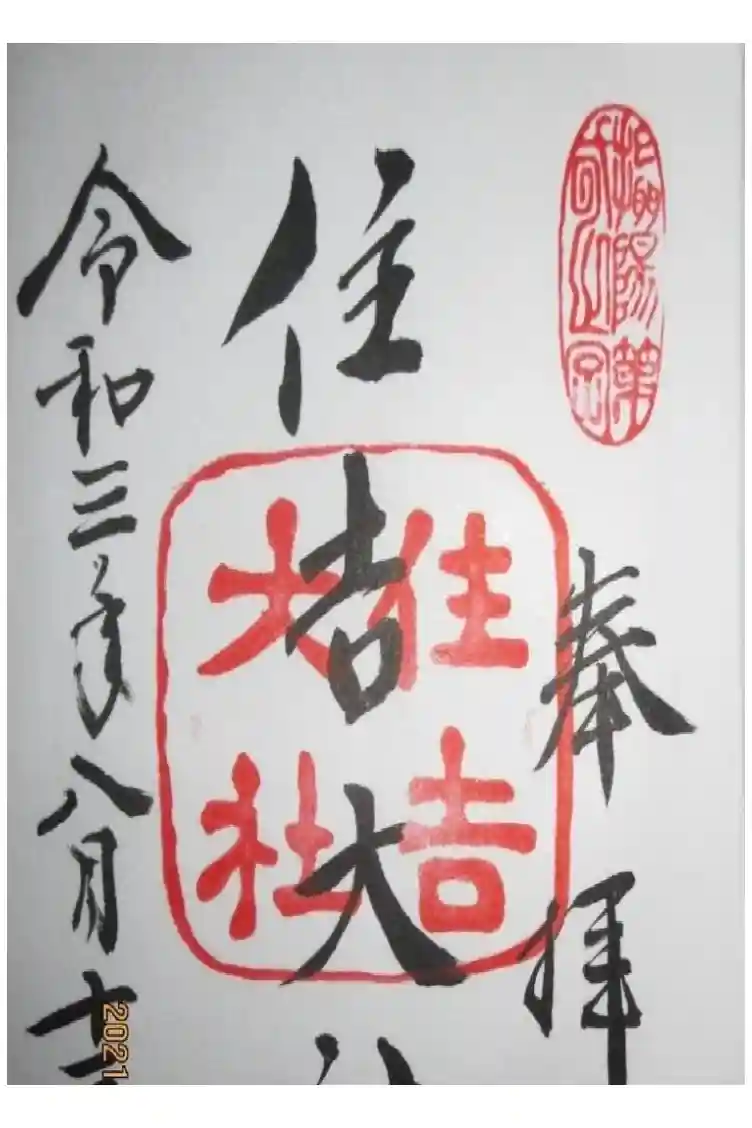 奉拝
住吉大
住吉
大社
令和三年八月十
2021